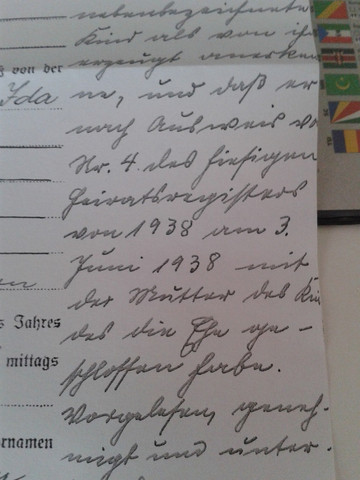 nebenbezeichnete
Kind als von ih
erzeugt anerken
von der
Ida
ne, und daß er
nach Ausweis vo
Nr. 4 des hiesigen
Heiratsregisters
von 1938 am 3.
Juni 1938 mit
der Mutter des Kin
des die Ehe ge-
schlossen habe.
Jahres
mittags
Vorgelesen, geneh-
migt und unter-
rnamen